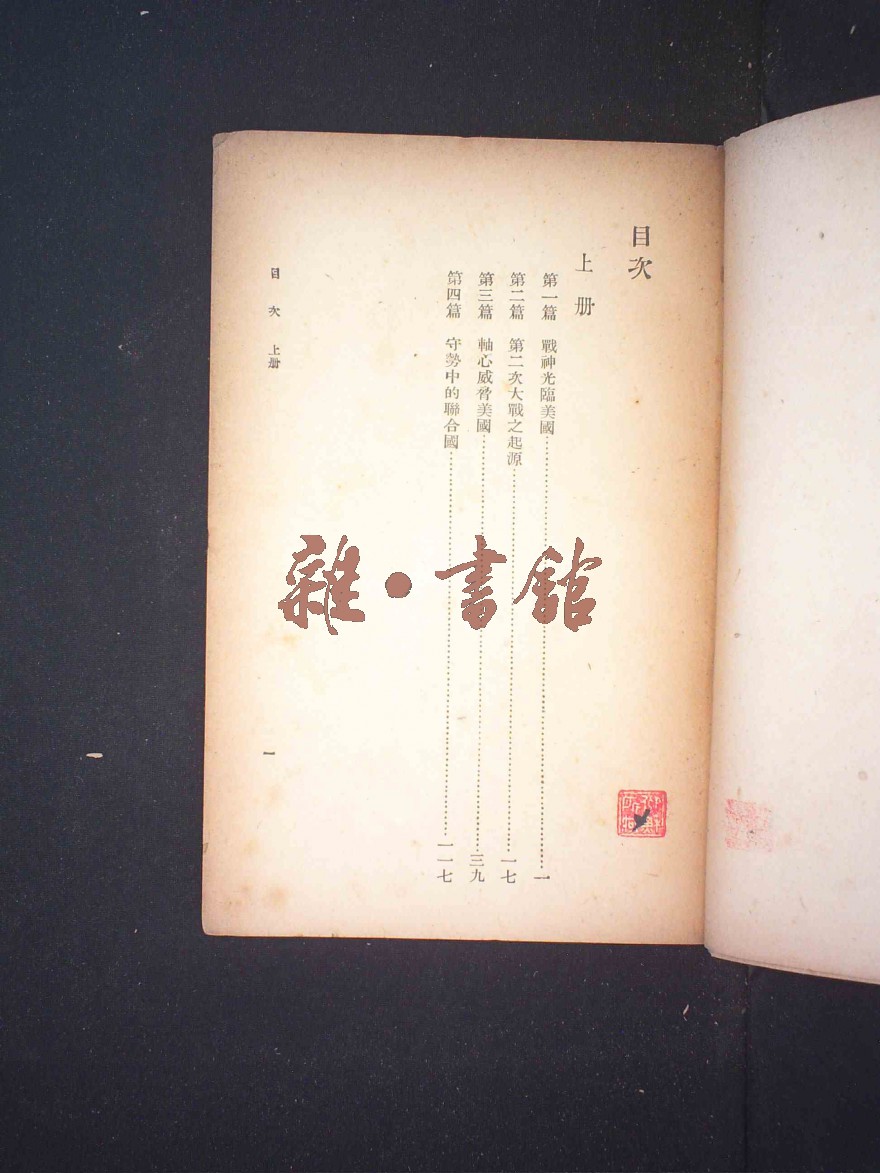 目次
上册
第一篇 戰神光臨美國……一
第二篇 第二次大戰之起源……一七
第三篇 軸心威脅美國……三九
第四篇 守勢中的聯合國……一一七
目次 上册
一
雜·書館